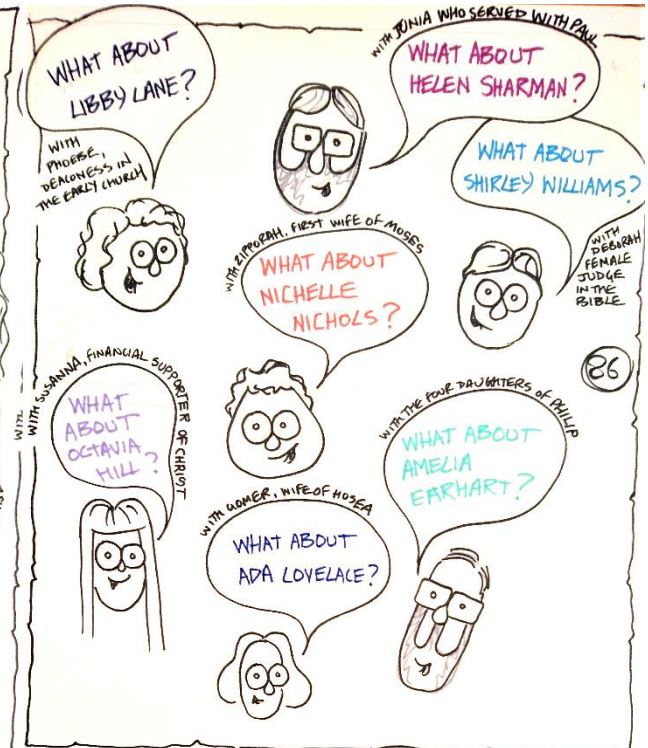 WHAT ABOUT
LIBBY LANE?
WITH
PHOEBE,
DEACONESS IN
THE EARLY CHURCH
WITH JUNIA WHO SERVED WITH PAUL
WHAT ABOUT
HELEN SHARMAN?
WHAT ABOUT
SHIRLEY WILLIAMS?
WITH
DEBORAH
FEMALE
JUDGE
IN THE
BIBLE
WITH ZIPPORAH, FIRST WIFE OF MOSES
WHAT ABOUT
NICHELLE
NICHOLS?
86
WITH SUSANNA, FINANCIAL SUPPORTER OF CHRIST
WHAT
ABOUT
OCTAVIA
HILL?
WITH THE FOUR DAUGHTERS OF PHILIP
WHAT ABOUT
AMELIA
EARHART?
WITH GOMER, WIFE OF HOSEA
WHAT ABOUT
ADA LOVELACE?